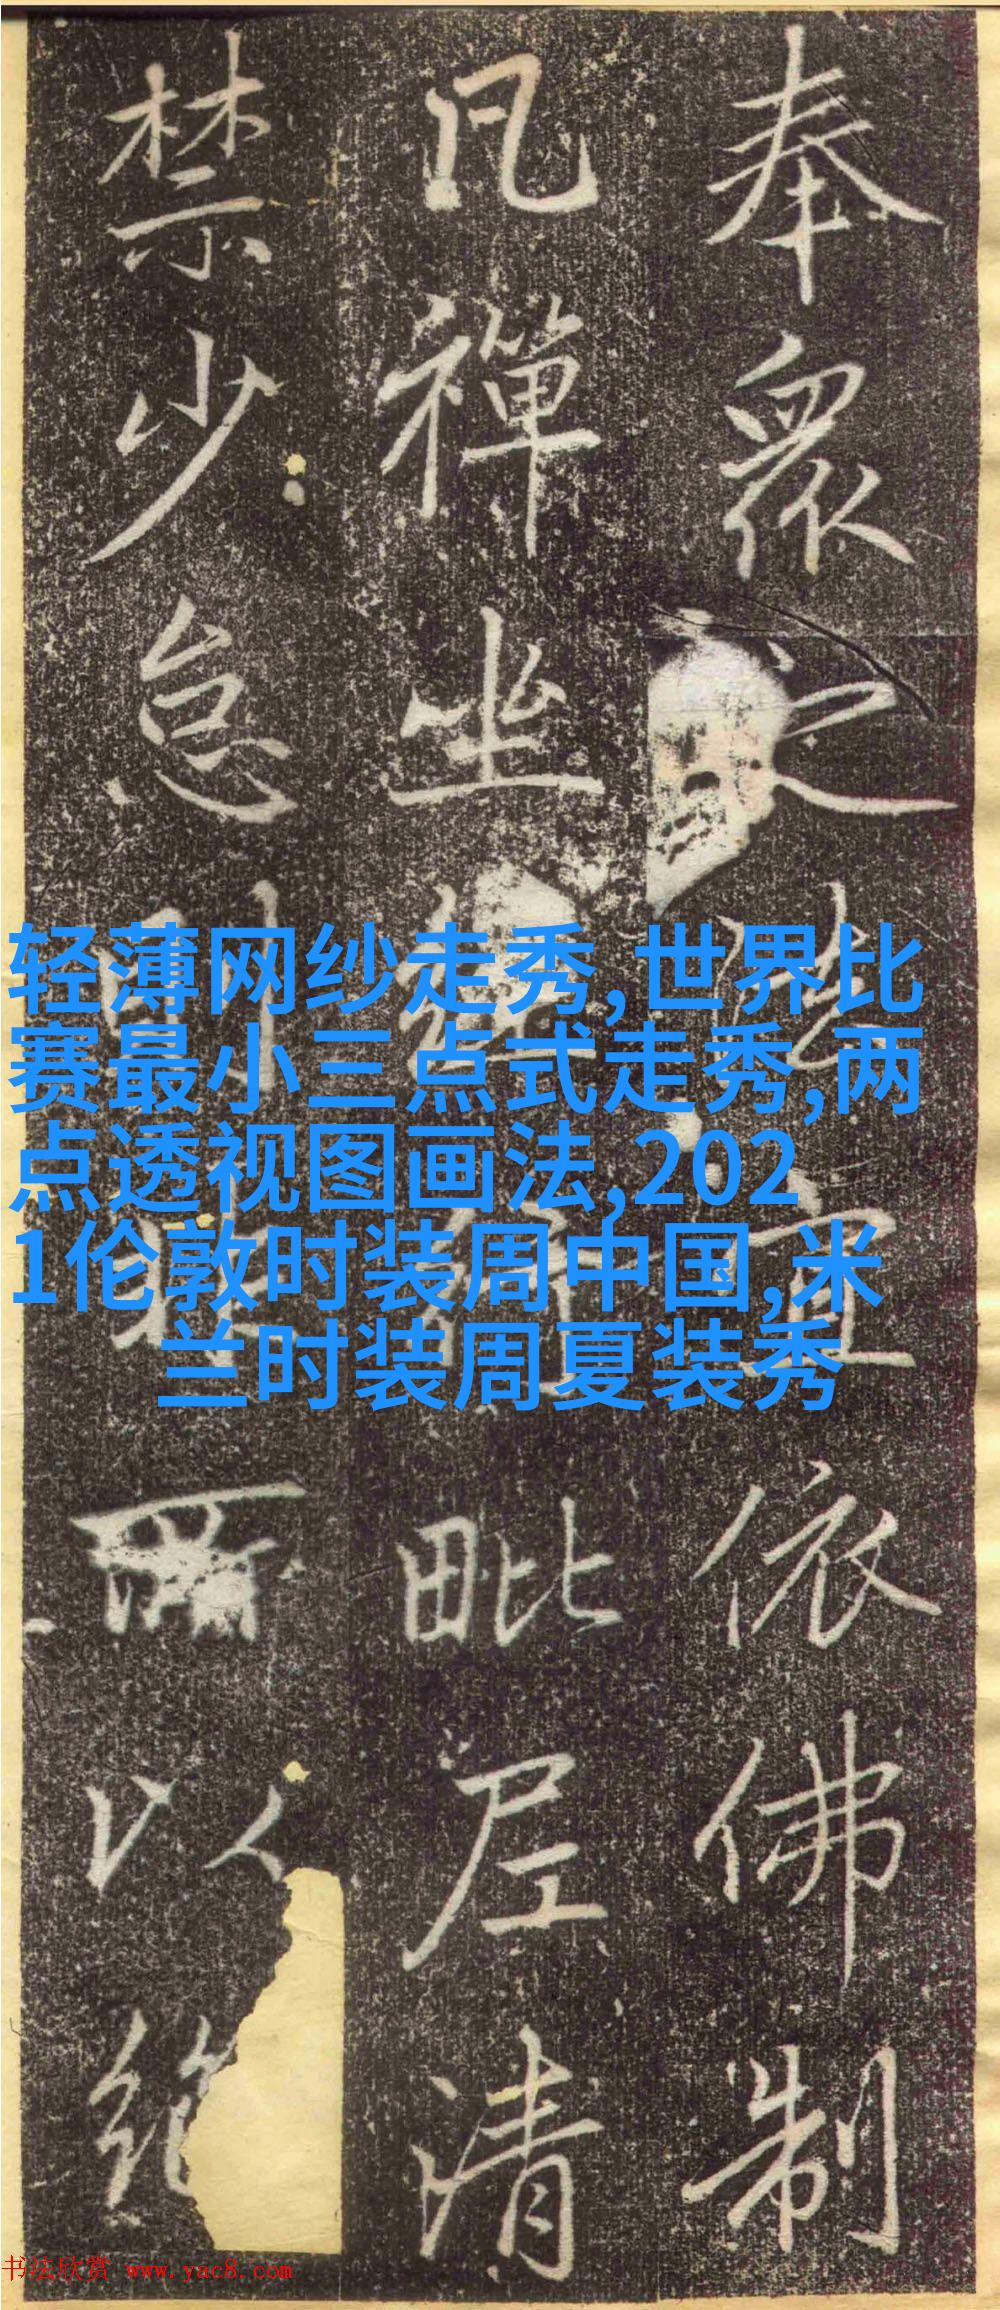 奉衆宜依佛制
凡禪坐行毗尼清
禁少怠則以絶
轻薄网纱走秀,世界比
赛最小三点式走秀,两
点透视图画法,202
1伦敦时装周中国,米
兰时装周夏装秀
书法欣赏 www.yac8.com